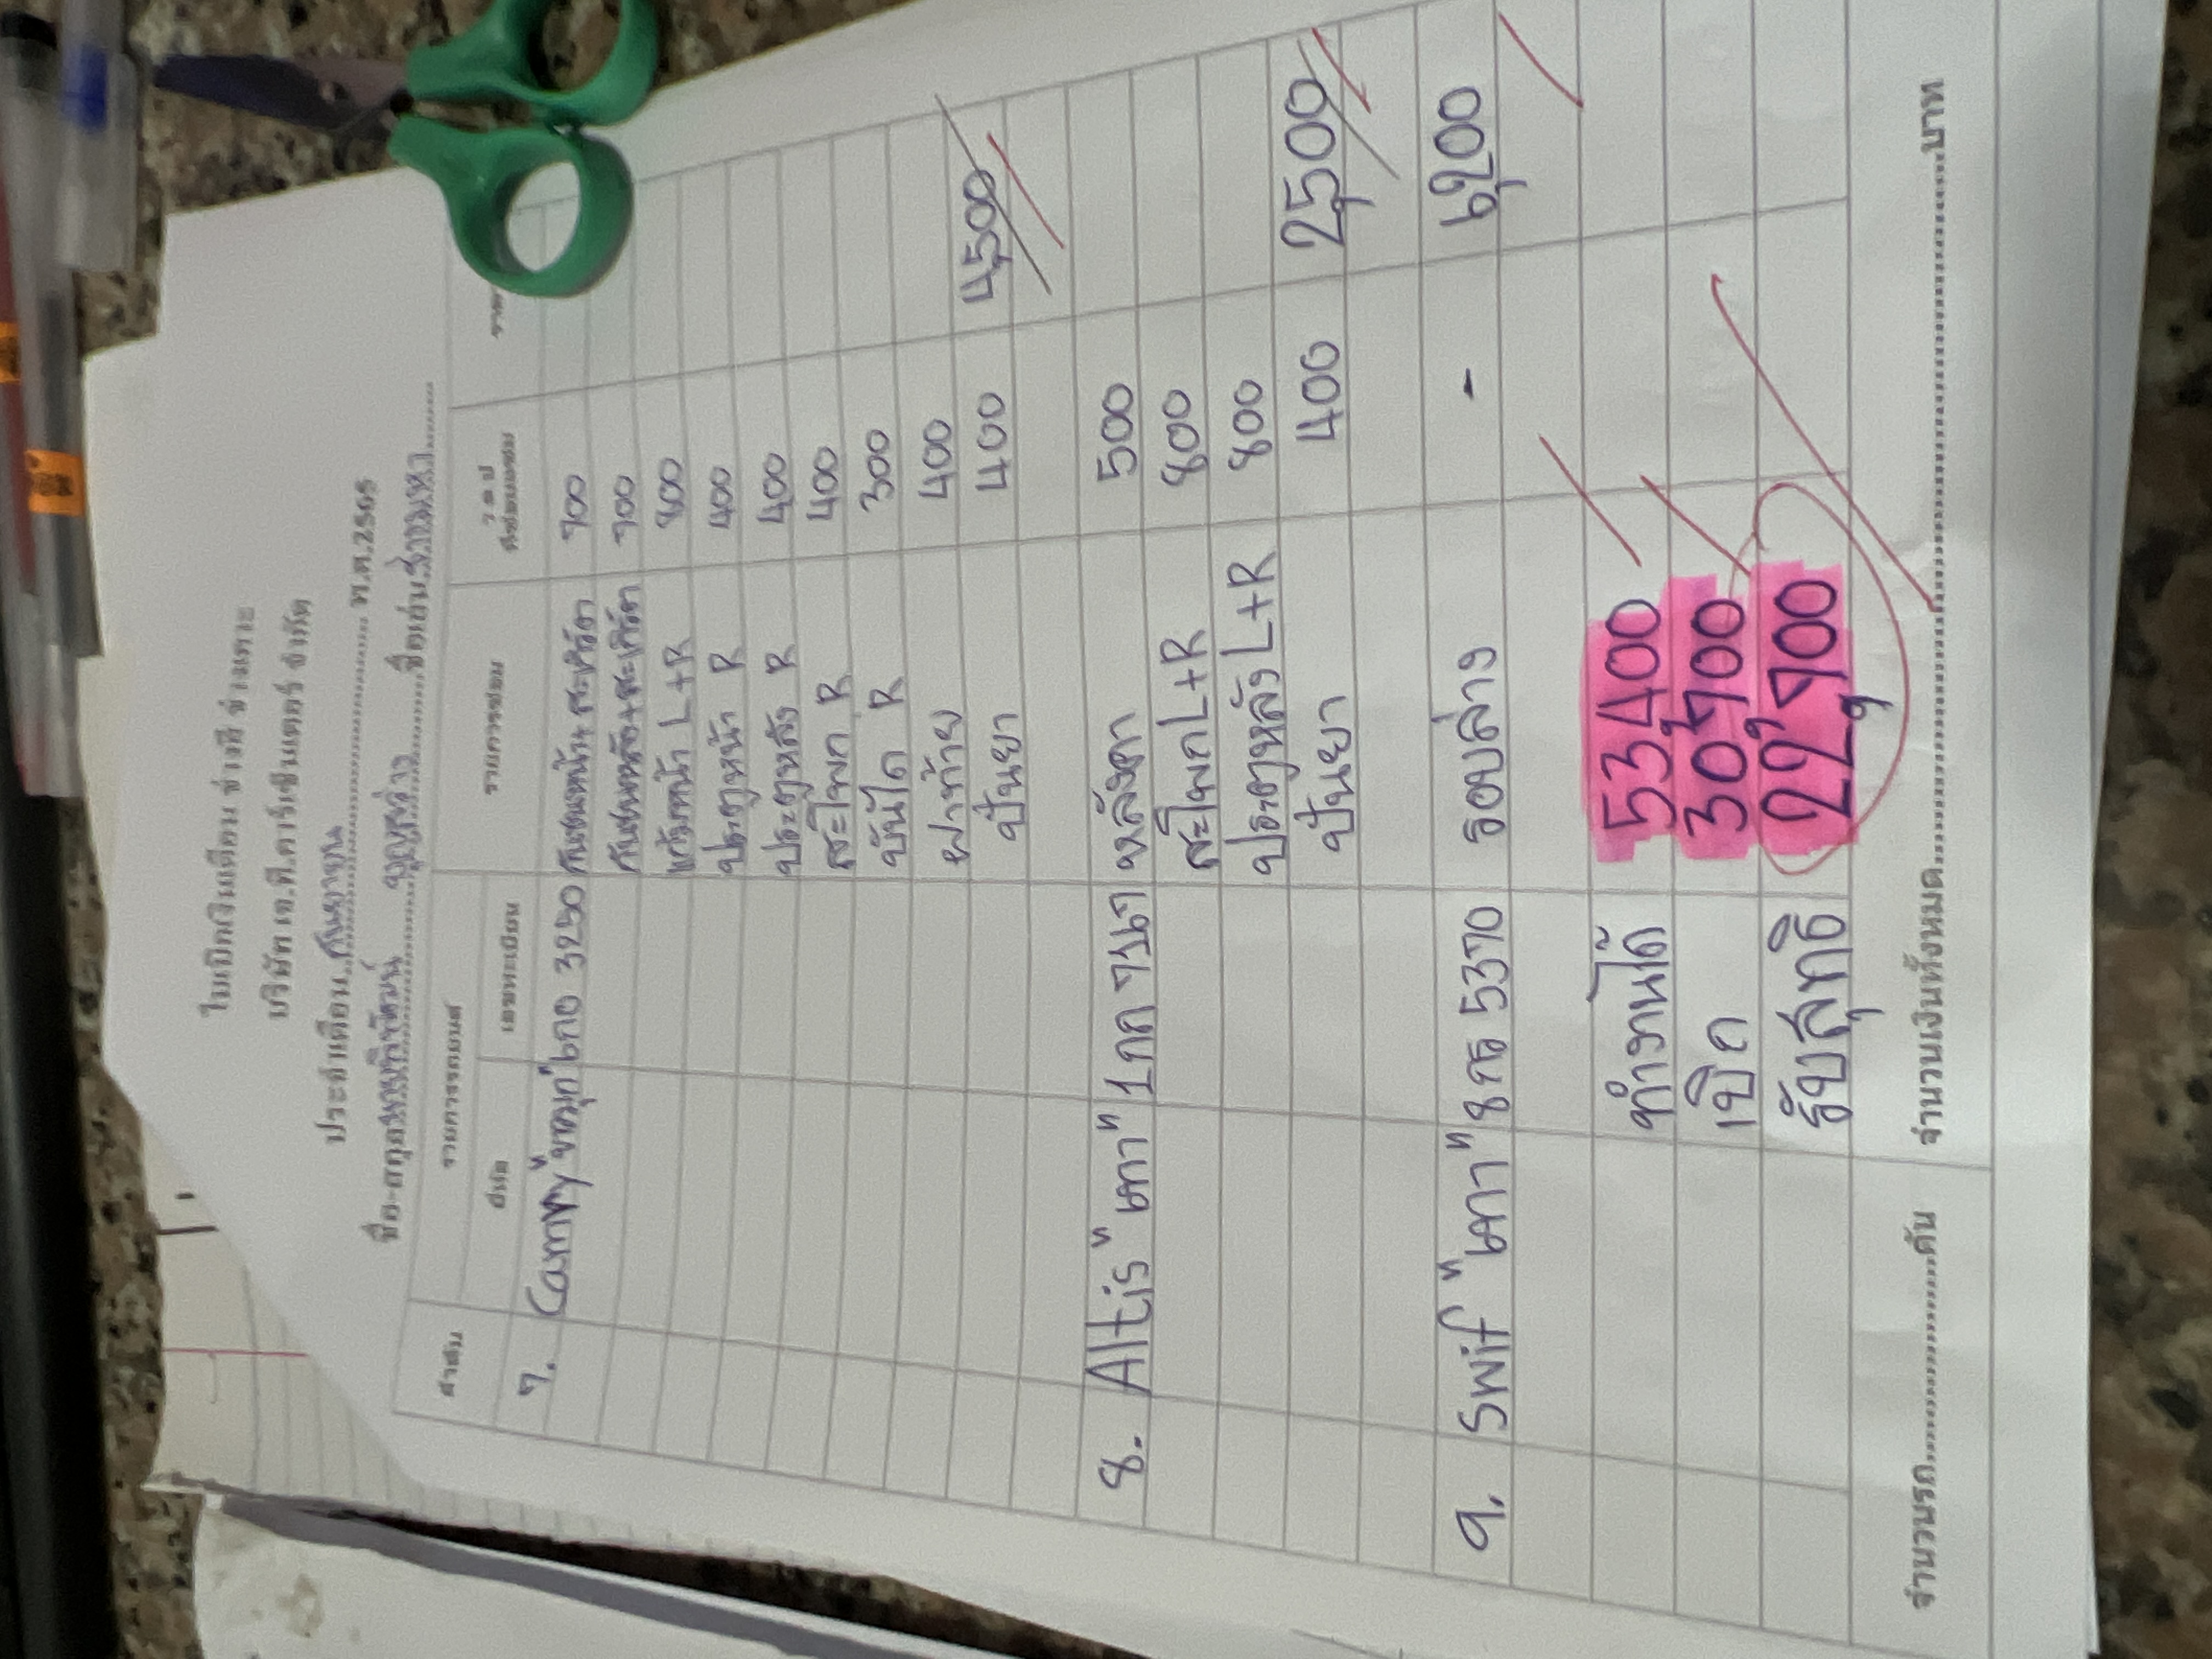 ใบเบิกเงินเดือน ช่างสี ช่างเคาะ
บริษัท เจ.ที.คาร์เซ็นเตอร์ จำกัด
ประจำเดือน กันยายน พ.ศ.2565
ชื่อ-สกุล ชื่อเล่น
ลำดับ รายการรถยนต์ รายการซ่อม ว ด ป
ยี่ห้อ เลขทะเบียน
7. Camry "ขาวมุก" 6กอ 3250 กันชนหน้า+สะเกิร์ต 700
กันชนหลัง+สะเกิร์ต 700
แก้มหน้า L+R 800
ประตูหน้า R 400
ประตูหลัง R 400
สะโพก R 400
บันได R 300
ฝาท้าย 400
ปั่นยา 400 4,500
8. Altis "เทา" 1กก 7167 หลังคา 500
สะโพก L+R 800
ประตูหลัง L+R 800
ปั่นยา 400 2,500
9. Swif "เทา" 8กธ 5370 รอบล่าง - 6,200
ทำงานได้ 53,400
เบิก 30,700
รับสุทธิ 22,700
จำนวนรถ คัน จำนวนเงินทั้งหมด บาท